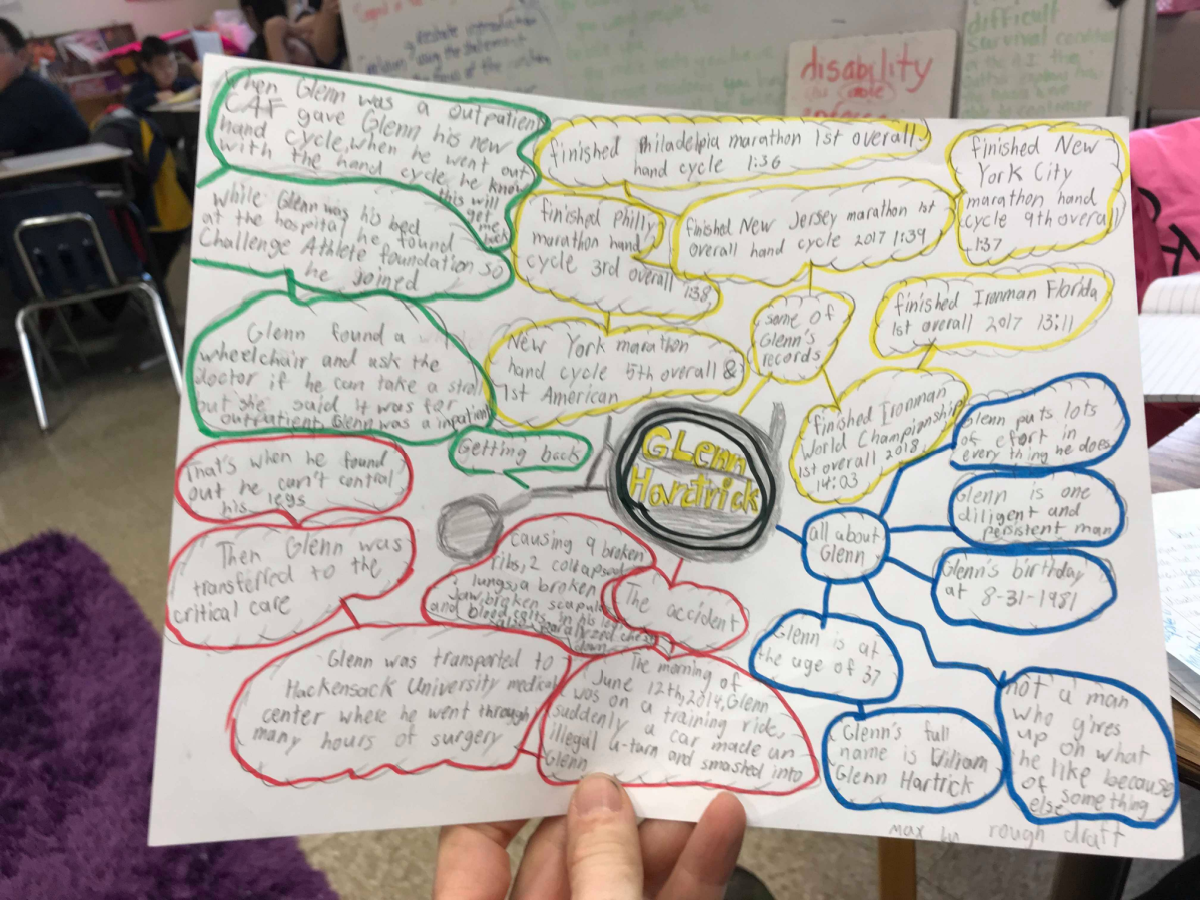 difficult
survival
disability
When Glenn was a outpatient
CAF gave Glenn his new
hand cycle, when he went out
with the hand cycle he knew
this will
get
me
back
while Glenn was his bed
at the hospital he found
Challenge Athlete foundation so
he joined
Glenn found a
wheelchair and ask the
doctor if he can take a stroll
but she said it was for
outpatient, Glenn was a inpatient
Getting back
finished Philadelpia marathon 1st overall
hand cycle 1:36
finished Philly
marathon hand
cycle 3rd overall
1:38
finished New Jersey marathon 1st
overall hand cycle 2017 1:39
finished New
York City
marathon hand
cycle 9th overall
1:37
New York marathon
hand cycle 5th overall &
1st American
some of
Glenn's
records
finished Ironman Florida
1st overall 2017 13:11
finished Ironman
World Championship
1st overall 2018
14:03
GLenn
Hartrick
That's when he found
out he can't control
his legs
Then Glenn was
transferred to the
critical care
causing 9 broken
ribs, 2 collapsed
lungs, a broken
jaw, broken scapula
and blood in his
paralyzed chest
down
The accident
Glenn was transported to
Hackensack University medical
center where he went through
many hours of surgery
The morning of
June 12th, 2014, Glenn
was on a training ride,
suddenly a car made an
illegal u-turn and smashed into
Glenn
all about
Glenn
Glenn puts lots
of efort in
every thing he does
Glenn is one
diligent and
persistent man
Glenn's birthday
at 8-31-1981
Glenn is at
the age of 37
Glenn's full
name is William
Glenn Hartrick
not a man
who gives
up on what
he like because
of something
else
max rough draft